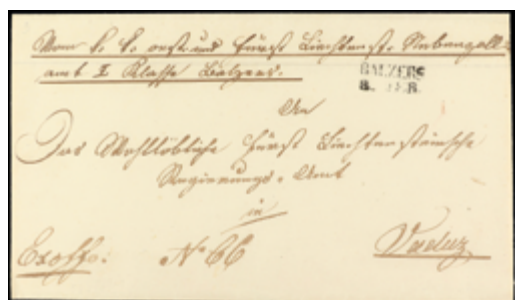 Vom k. k. oestr. und Fürst Liechtenst. Nebenzoll-
amt I Klasse Balzers.
BALZERS
8. FEB.
An
Das Wohllöbliche Fürst Liechtensteinsche
Regierungs-Amt
in
Exoffo: No 66
Vaduz